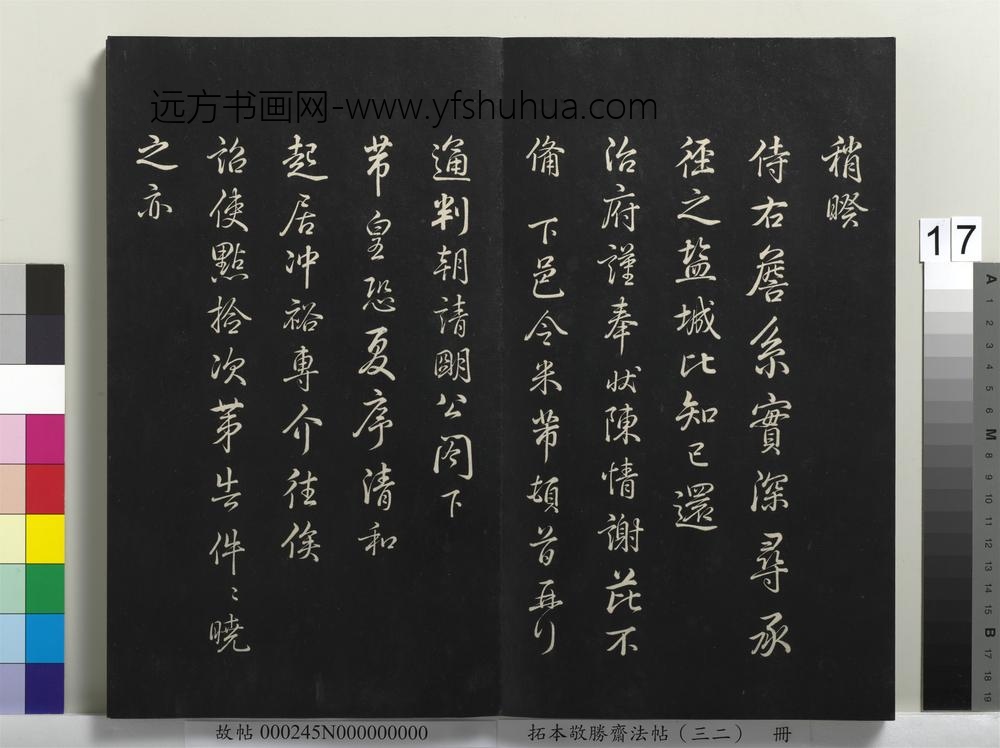 远方书画网-www.yfshuhua.com
稍暌
侍右詹系實深尋承
徑之盐城比知已還
治府謹奉狀陳情謝茈不
備 下邑令米芾頓首再行
通判朝請明公阁下
芾皇恐夏序清和
起居冲裕專介往俟
詔使點撿次第告件〻曉
之亦
17
A
1
2
3
4
5
6
M
8
9
10
11
12
13
14
15
B
17
18
19
故帖 000245N000000000
拓本敬勝齋法帖（三二） 冊